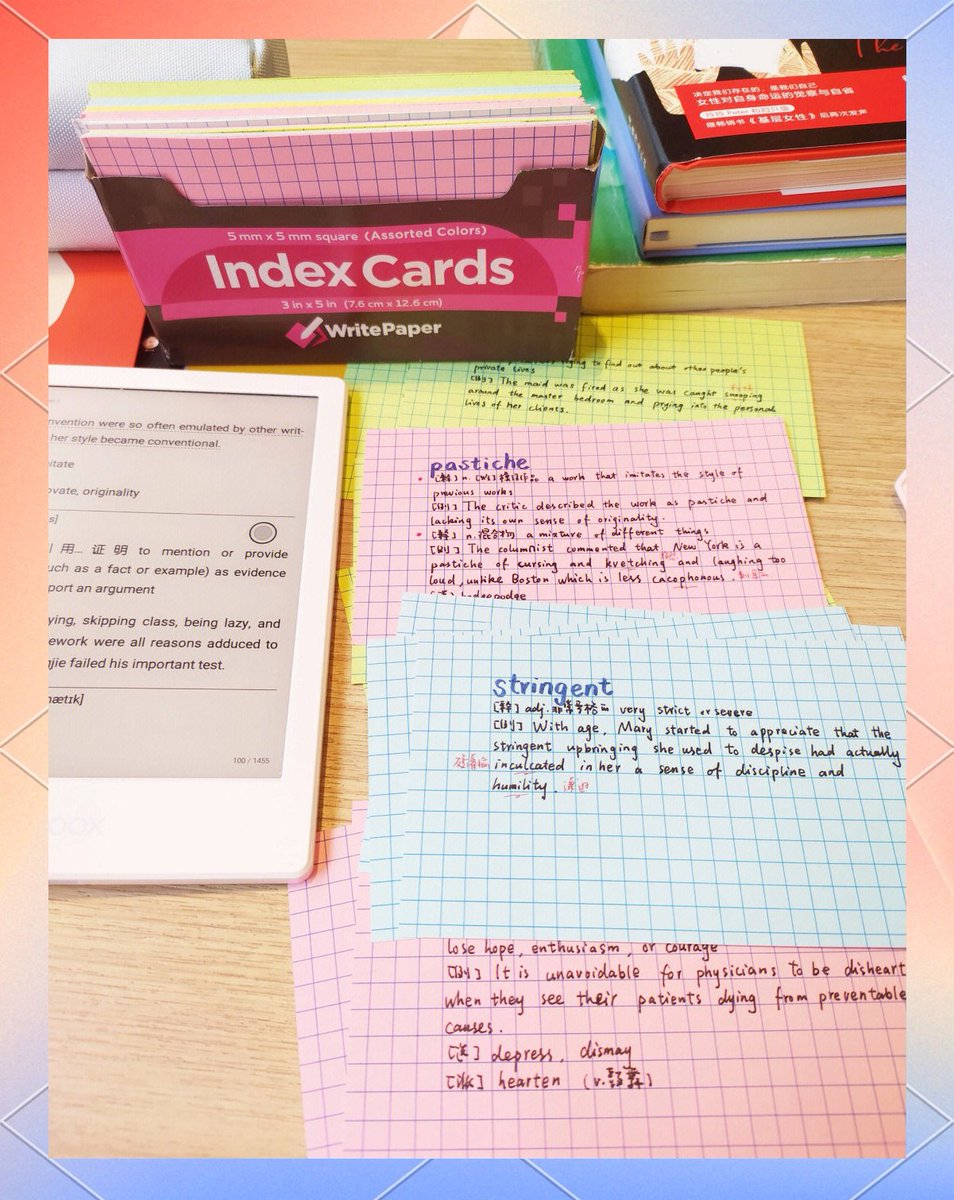 The
决定我们存在的，是我们自己
女性对自身命运的觉察与自省
继畅销书《基层女性》后再次发声
5 mm x 5 mm square (Assorted Colors)
Index Cards
3 in x 5 in (7.6 cm x 12.6 cm)
WritePaper
trying to find out about other people's
private lives
[例] The maid was fired as she was caught snooping
around the master bedroom and prying into the personal
lives of her clients.
nvention were so often emulated by other writ-
her style became conventional.
nitate
ovate, originality
s]
用... 证明 to mention or provide
uch as a fact or example) as evidence
port an argument
ying, skipping class, being lazy, and
ework were all reasons adduced to
gjie failed his important test.
nætɪk]
100 / 1455
pastiche
[释] n. a work that imitates the style of
previous works
[例] The critic described the work as pastiche and
lacking its own sense of originality.
[释] n. 混合物 a mixture of different things
[例] The columnist commented that New York is a
pastiche of cursing and kvetching and laughing too
loud, unlike Boston which is less cacophonous. 刺耳的
hodgepodge
stringent
[释] adj. 非常严格的 very strict or severe
[例] With age, Mary started to appreciate that the
stringent upbringing she used to despise had actually
inculcated in her a sense of discipline and
humility. 谦逊
lose hope, enthusiasm, or courage
[例] It is unavoidable for physicians to be disheart
when they see their patients dying from preventable
causes.
[近] depress, dismay
[派] hearten (v.鼓舞)